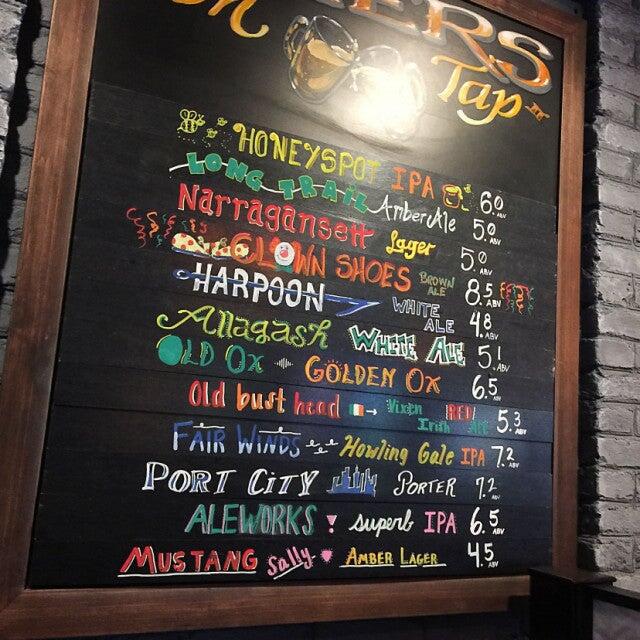 on
Tap
HONEYSPOT IPA 6.0 ABV
LONG TRAIL Amber Ale 5.0 ABV
Narragansett Lager 5.0 ABV
CLOWN SHOES BROWN ALE 8.5 ABV
HARPOON WHITE ALE 4.8 ABV
Allagash WHITE ALE 5.1 ABV
OLD OX GOLDEN OX 6.5 ABV
Old bust head Vixen Irish RED Ale 5.3 ABV
FAIR WINDS Howling Gale IPA 7.2 ABV
PORT CITY PORTER 7.2 ABV
ALEWORKS ! superb IPA 6.5 ABV
MUSTANG Sally AMBER LAGER 4.5 ABV